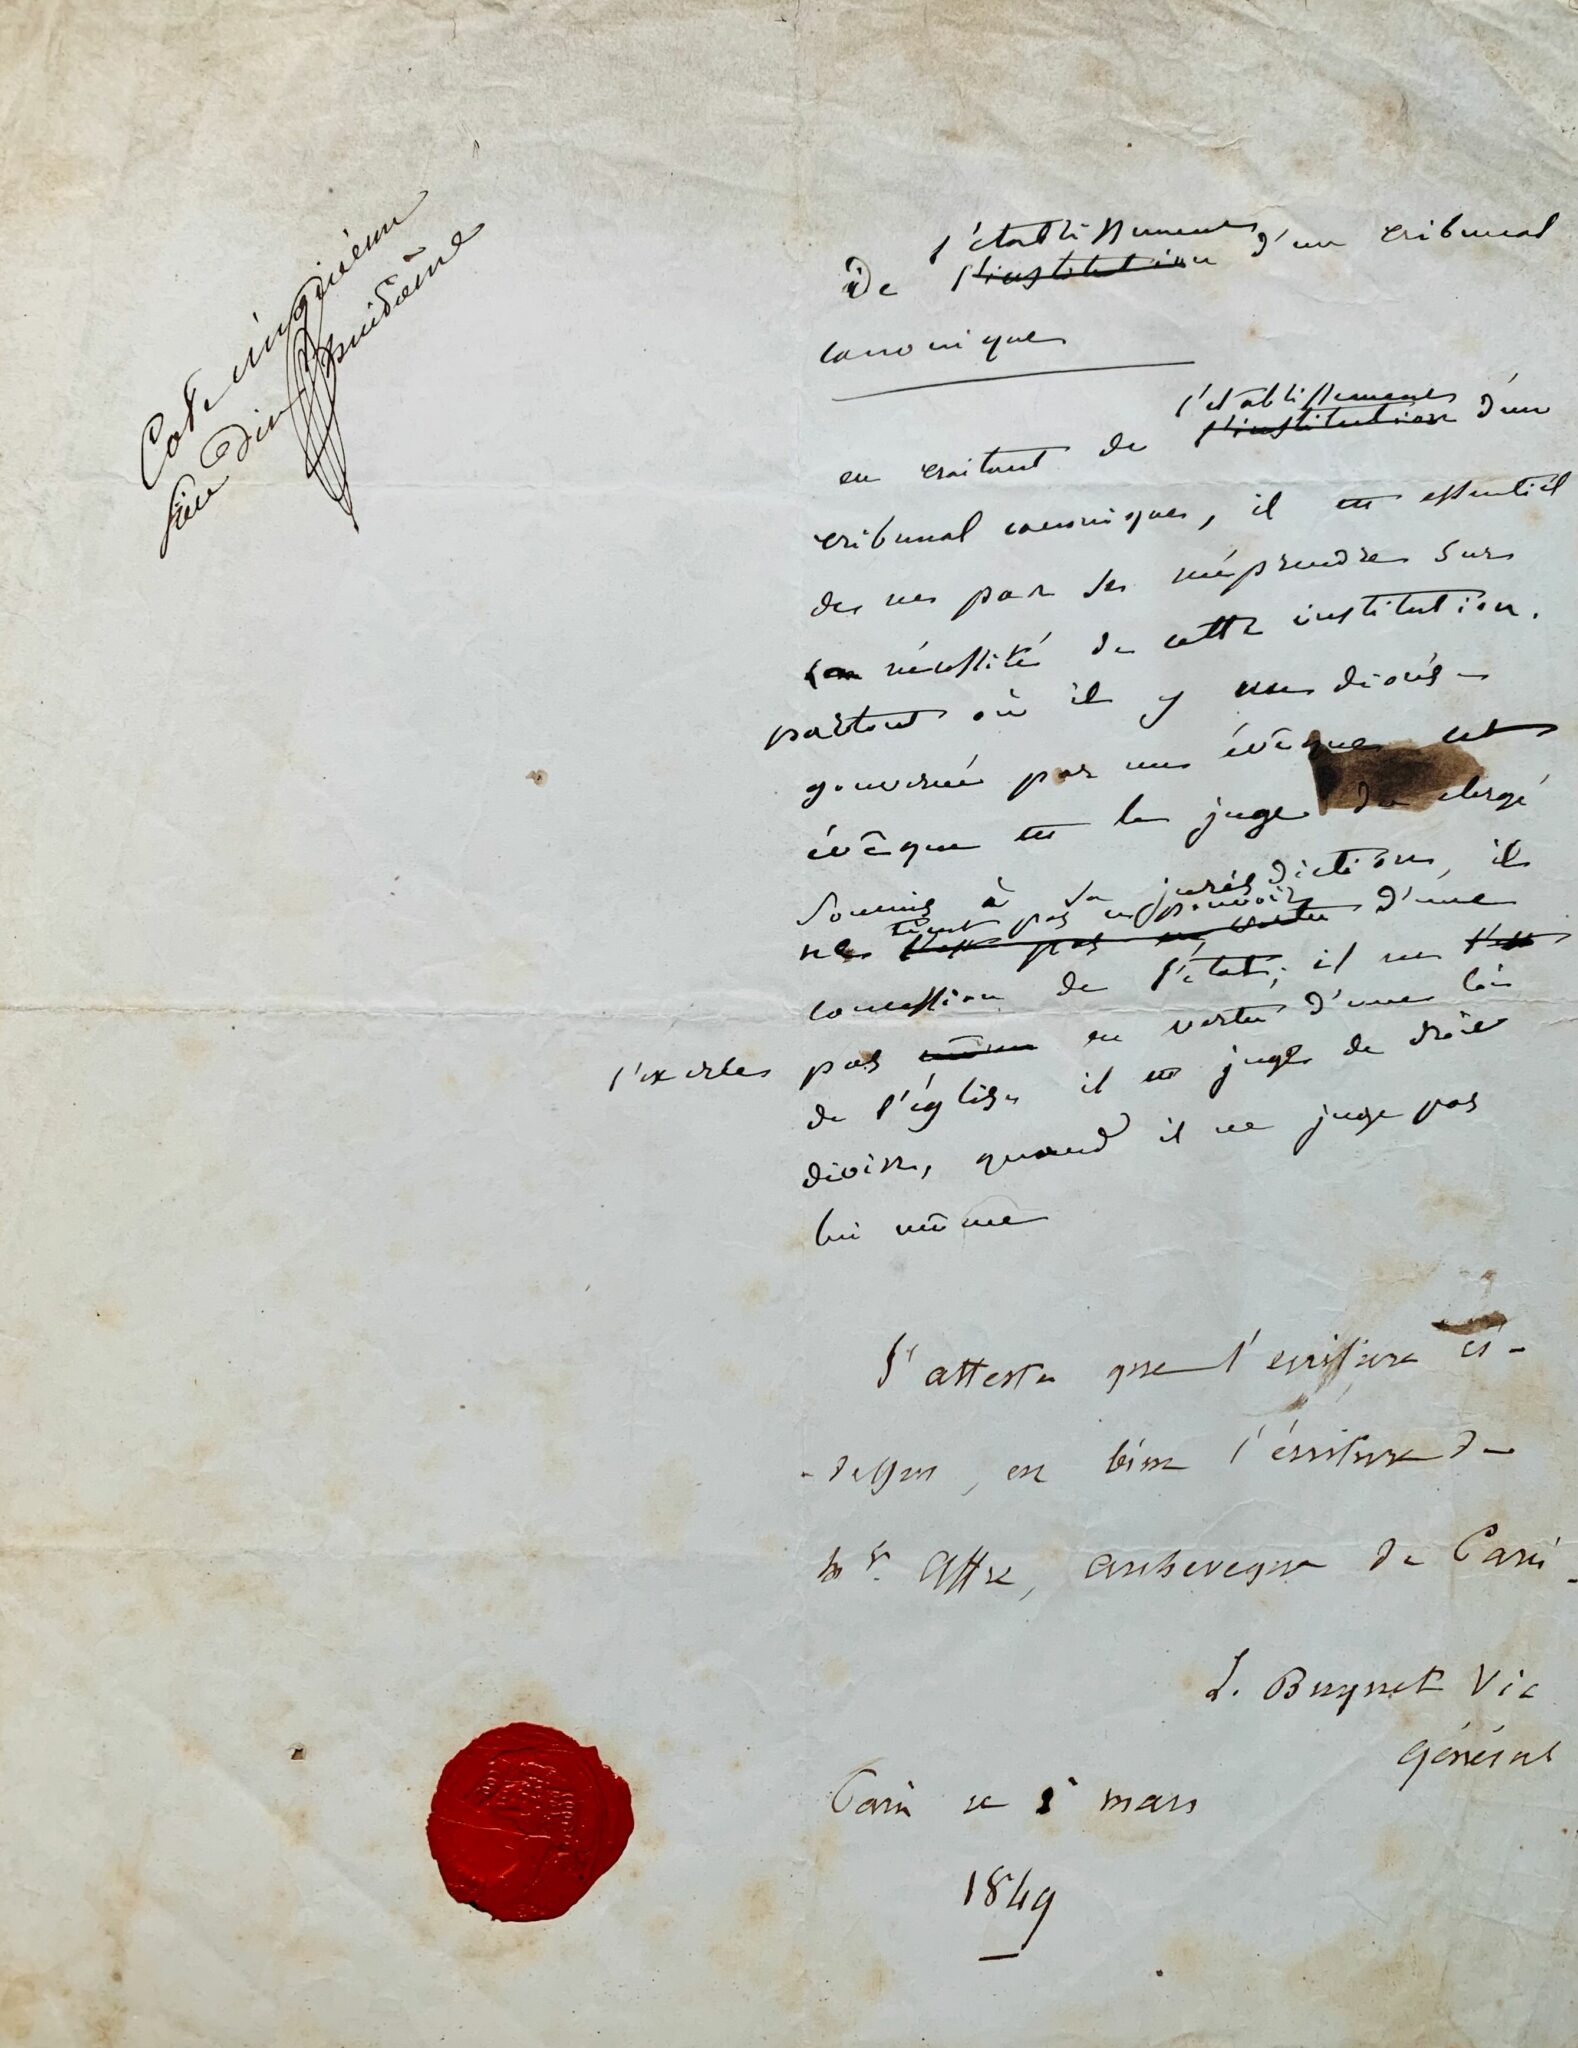 Cote cinquième
pièce Dix huidème
l'établissement
De l'institution d'un tribunal
canonique
l'établissement
en traitant de l'institution d'un
tribunal canonique, il est essentiel
de ne pas se méprendre sur
la nécessité de cette institution.
partout où il y un diocèse
gouverné par un évêque cet
évêque est le juge du clergé
soumis à sa jurisdiction, il
tient pas ce pouvoir
ne l'est pas en vertu d'une
concession de l'état; il ne l'est
l'exerce pas même en vertu d'une loi
de l'église il est juge de droit
divin, quand il ne juge pas
lui même
J'atteste que l'ecriture ci-
-dessus, est bien l'écriture de
Mgr. Affre, archeveque de Paris.
L. Buquet Vic
général
Paris ce mars
1849